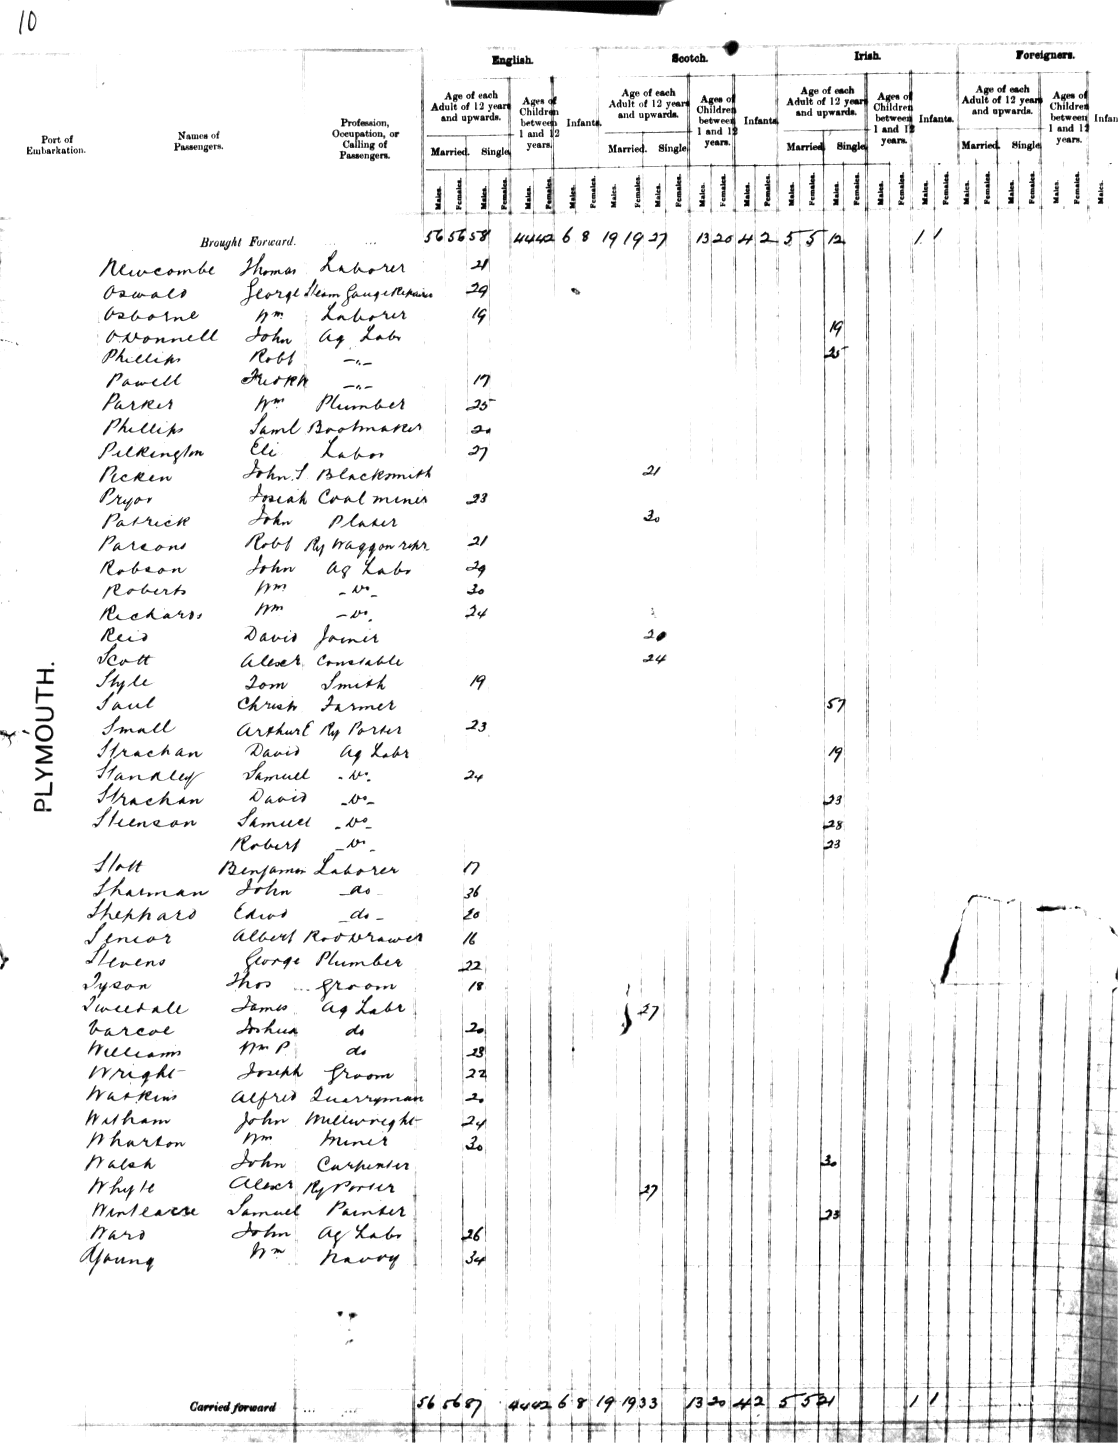 10
English. Scotch. Irish. Foreigners.
Port of Embarkation. Names of Passengers. Profession, Occupation, or Calling of Passengers.
Age of each Adult of 12 years and upwards. Ages of Children between 1 and 12 years. Infants. Age of each Adult of 12 years and upwards. Ages of Children between 1 and 12 years. Infants Age of each Adult of 12 years and upwards. Ages of Children between 1 and 12 years. Infants. Age of each Adult of 12 years and upwards. Ages of Children between 1 and 12 years. Infan
Married. Single Married. Single Married. Single Married. Single
Males. Females. Males. Females. Males. Females. Males. Females. Males. Females. Males. Females. Males. Females. Males. Females. Males. Females. Males. Females. Males. Females. Males. Females. Males. Females. Males. Females. Males. Females. Males.
PLYMOUTH.
Brought Forward. ... ... 56 56 58 44 42 6 8 19 19 27 13 20 4 2 5 5 12 1 1
Newcombe Thomas Laborer 21
Oswald George Steam Gauge Repairer 29
Osborne Wm Laborer 19
O'Donnell John Ag Labr 19
Phillips Robt -"- 25
Powell Fredk -"- 17
Parker Wm Plumber 25
Phillips Saml Bootmaker 20
Pilkington Eli Labor 27
Picken John S Blacksmith 21
Pryor Josiah Coal miner 23
Patrick John 30
Parsons Robt Ry Waggon repr 21
Robson John Ag Labr 29
Roberts Wm - Do - 30
Richards Wm - Do. 24
Reid David Joiner 20
Scott Alexr Constable 24
Style Tom Smith 19
Saul Christr Farmer 57
Small Arthur E Ry Porter 23
Strachan David Ag Labr 19
Standley Samuel - Do. 24
Strachan David - Do - 23
Steenson Samuel - Do - 28
Robert - Do - 23
Stott Benjamin Laborer 17
Sharman John - do - 36
Shephard Edwd - do - 20
Senior Albert Rod Drawer 16
Stevens George Plumber 22
Tyson Thos ... Groom 18
Tweedale James Ag Labr 27
Varcoe Joshua do 20
Williams Wm P. do 23
Wright Joseph Groom 22
Watkins Alfred Quarryman 20
Witham John Millwright 24
Wharton Wm Miner 30
Walsh John Carpenter 30
Whyte Alexr Ry Porter 27
Samuel Painter 23
Ward John Ag Labr 26
Young Wm Navvy 34
Carried forward ... ... 56 56 87 44 42 6 8 19 19 33 13 20 4 2 5 5 21 1 1